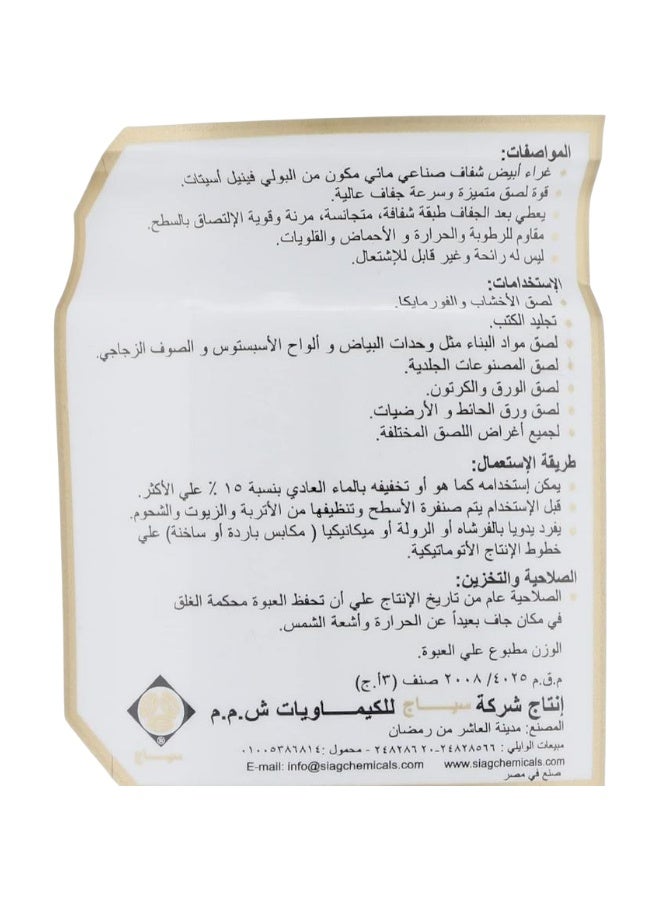 المواصفات:
غراء أبيض شفاف صناعي مائي مكون من البولي فينيل أسيتات.
قوة لصق متميزة وسرعة جفاف عالية.
يعطي بعد الجفاف طبقة شفافة، متجانسة، مرنة وقوية الإلتصاق بالسطح.
مقاوم للرطوبة والحرارة و الأحماض والقلويات.
ليس له رائحة وغير قابل للإشتعال.
الإستخدامات:
لصق الأخشاب والفورمايكا.
تجليد الكتب.
لصق مواد البناء مثل وحدات البياض و ألواح الأسبستوس و الصوف الزجاجي.
لصق المصنوعات الجلدية.
لصق الورق والكرتون.
لصق ورق الحائط و الأرضيات.
لجميع أغراض اللصق المختلفة.
طريقة الإستعمال:
يمكن إستخدامه كما هو أو تخفيفه بالماء العادي بنسبة ١٥ ٪ علي الأكثر.
قبل الإستخدام يتم صنفرة الأسطح وتنظيفها من الأتربة والزيوت والشحوم.
يفرد يدويا بالفرشاه أو الرولة أو ميكانيكيا ( مكابس باردة أو ساخنة) علي
خطوط الإنتاج الأتوماتيكية.
الصلاحية والتخزين:
الصلاحية عام من تاريخ الإنتاج علي أن تحفظ العبوة محكمة الغلق
في مكان جاف بعيداً عن الحرارة وأشعة الشمس.
الوزن مطبوع علي العبوة.
م.ق.م ٤٠٢٥/ ٢٠٠٨ صنف (٣أ.ج)
إنتاج شركة سياج للكيماويات ش.م.م
المصنع: مدينة العاشر من رمضان
مبيعات الوايلي : ٢٤٨٢٨٥٦٦-٢٤٨٢٨٦٢٠ - محمول :٠١٠٠٥٣٨٦٨١٤
E-mail: info@siagchemicals.com www.siagchemicals.com
صنع في مصر
سياج